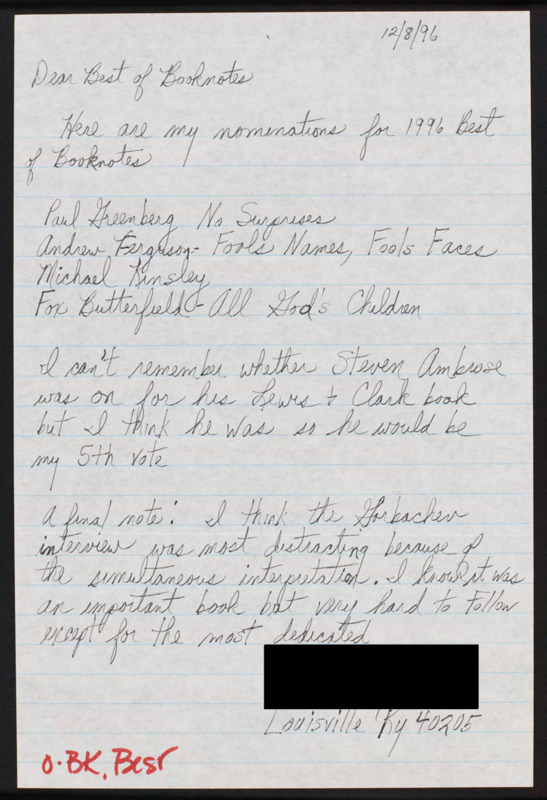 12/8/96
Dear Best of Booknotes
Here are my nominations for 1996 Best
of Booknotes
Paul Greenberg No Surprises
Andrew Ferguson - Fools Names, Fools Faces
Michael Kinsley
Fox Butterfield - All God's Children
I can't remember whether Steven Ambrose
was on for his Lewis + Clark book
but I think he was so he would be
my 5th vote
A final note: I think the Gorbachev
interview was most distracting because of
the simultaneous interpretation. I know it was
an important book but very hard to follow
except for the most dedicated
Louisville Ky 40205
O-BK, Best